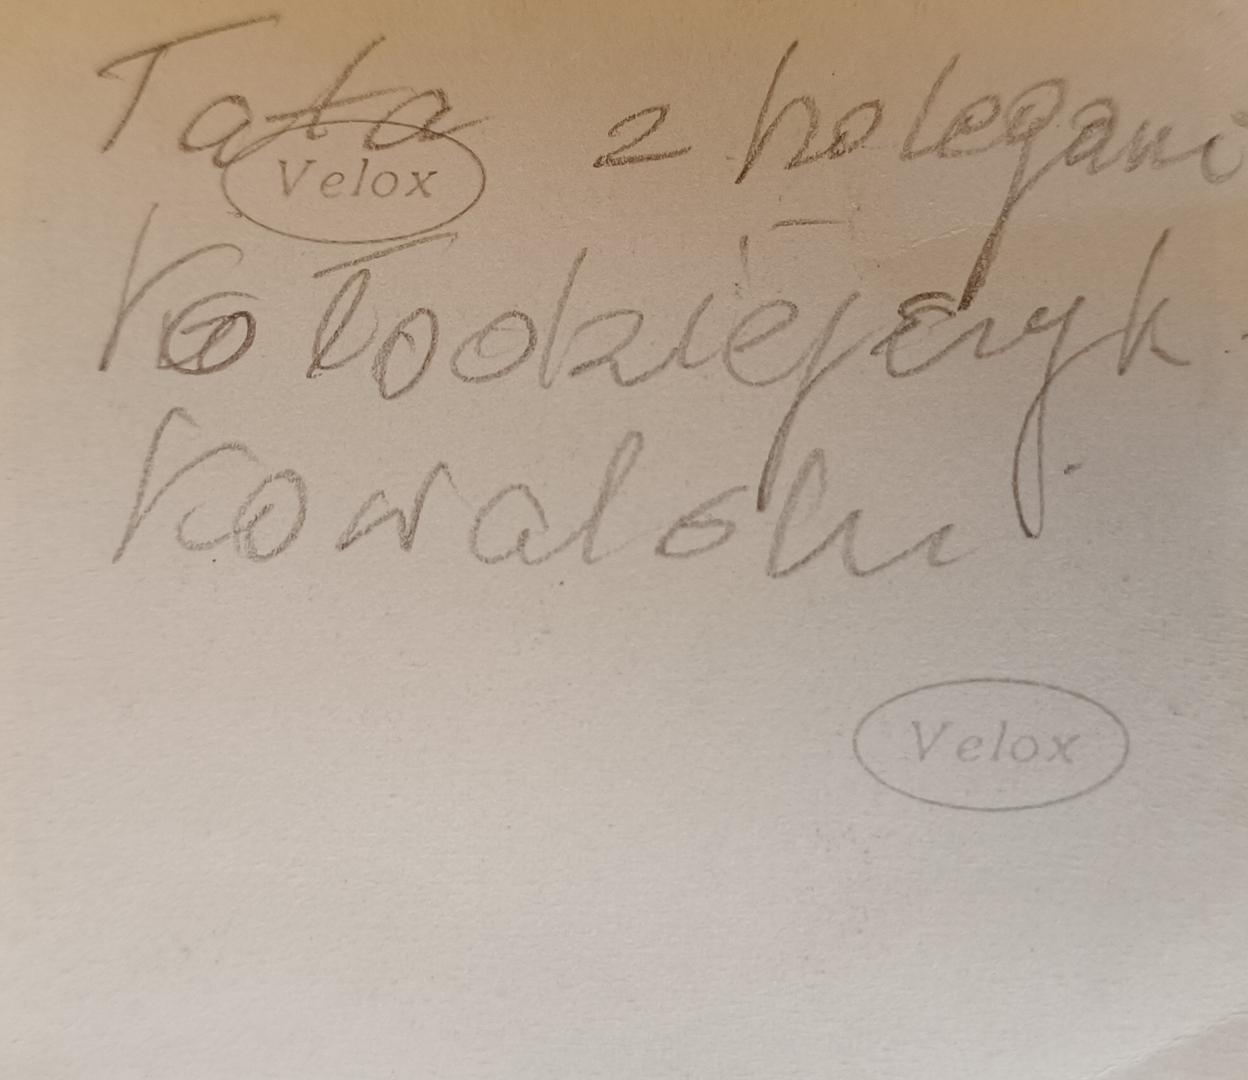 Tata z kolegami
Velox
Kołodziejczyk -
Kowalski
Velox